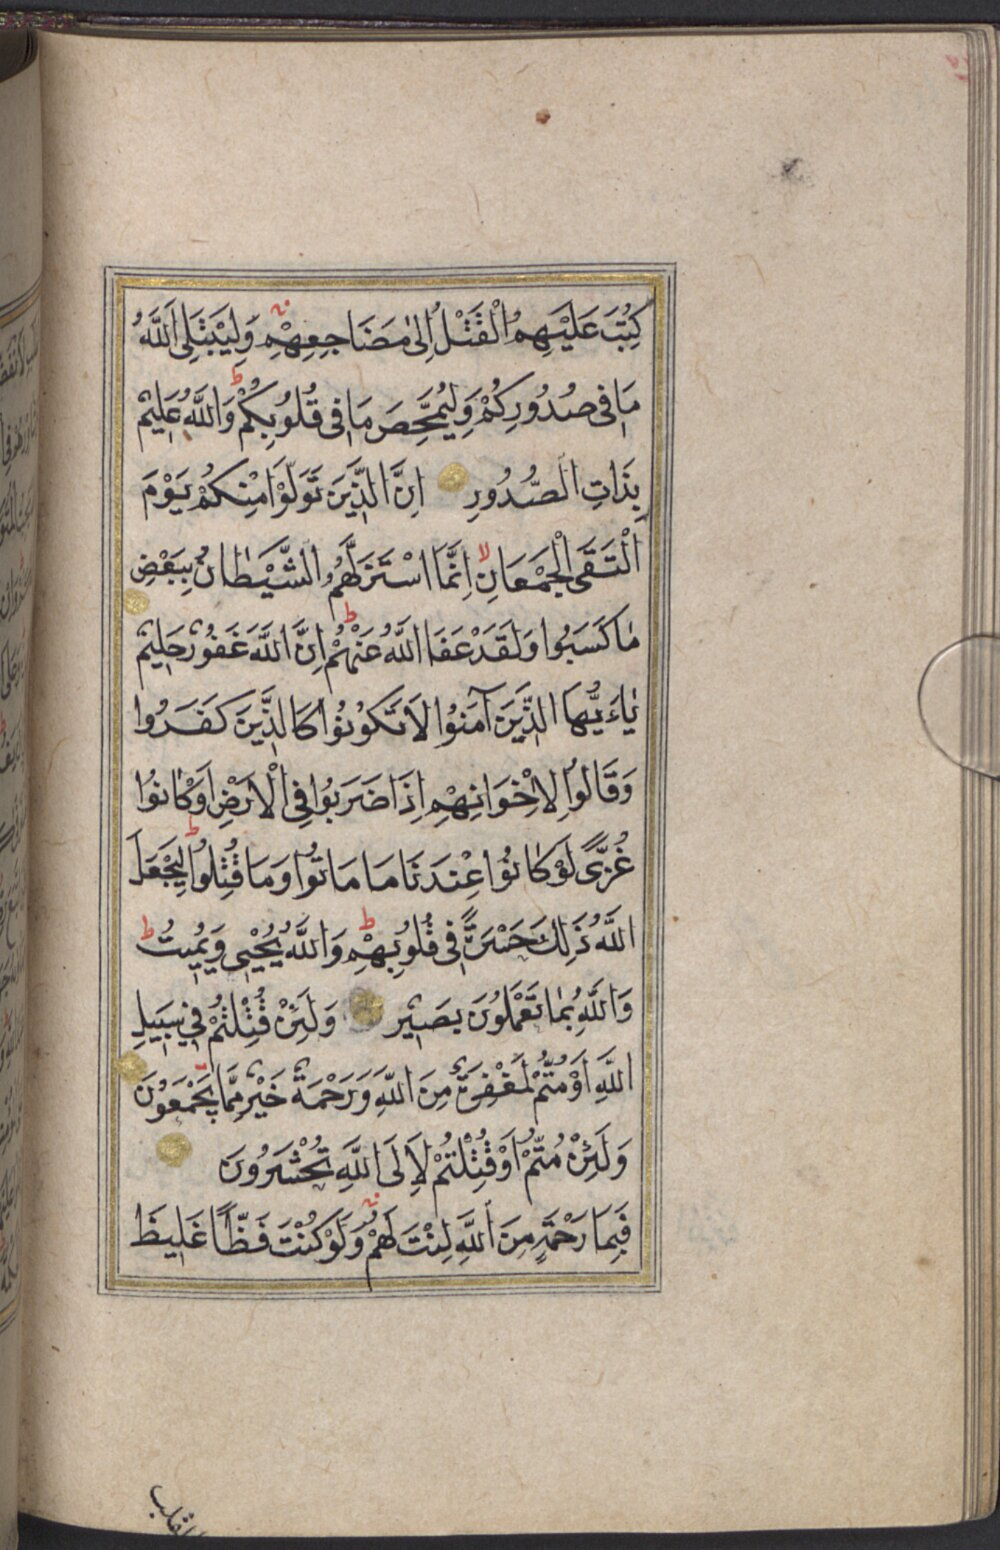 كُتِبَ عَلَيْهِمُ الْقَتْلُ اِلٰى مَضَاجِعِهِمْ وَلِيَبْتَلِىَ اللّٰهُ
مَا فِى صُدُورِكُمْ وَلِيُمَحِّصَ مَا فِى قُلُوبِكُمْ ط وَاللّٰهُ عَلِيمٌ
بِذَاتِ الصُّدُورِ اِنَّ الَّذِينَ تَوَلَّوْا مِنْكُمْ يَوْمَ
الْتَقَى الْجَمْعَانِ لا اِنَّمَا اسْتَزَلَّهُمُ الشَّيْطَانُ بِبَعْضِ
مَا كَسَبُوا وَلَقَدْ عَفَا اللّٰهُ عَنْهُمْ ط اِنَّ اللّٰهَ غَفُورٌ حَلِيمٌ
يَاءَيُّهَا الَّذِينَ آمَنُوا لَا تَكُونُوا كَالَّذِينَ كَفَرُوا
وَقَالُوا لِاِخْوَانِهِمْ اِذَا ضَرَبُوا فِى الْاَرْضِ اَوْ كَانُوا
غُزًّى لَوْ كَانُوا عِنْدَنَا مَا مَاتُوا وَمَا قُتِلُوا ط لِيَجْعَلَ
اللّٰهُ ذَلِكَ حَسْرَةً فِى قُلُوبِهِمْ ط وَاللّٰهُ يُحْيِى وَيُمِيتُ ط
وَاللّٰهُ بِمَا تَعْمَلُونَ بَصِيرٌ وَلَئِنْ قُتِلْتُمْ فِى سَبِيلِ
اللّٰهِ اَوْ مُتُّمْ لَمَغْفِرَةٌ مِنَ اللّٰهِ وَرَحْمَةٌ خَيْرٌ مِمَّا يَجْمَعُونَ
وَلَئِنْ مُتُّمْ اَوْ قُتِلْتُمْ لَاِلَى اللّٰهِ تُحْشَرُونَ
فَبِمَا رَحْمَةٍ مِنَ اللّٰهِ لِنْتَ لَهُمْ وَلَوْ كُنْتَ فَظًّا غَلِيظَ
القلب